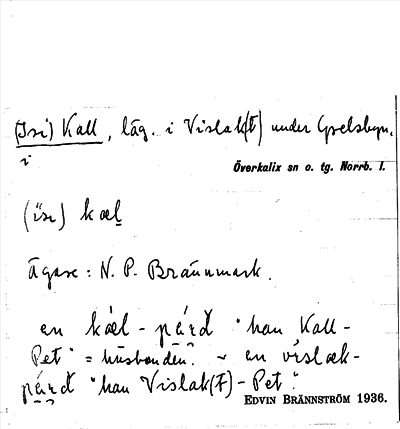 (Isi) Kall, läg. i Vislak(t) under Grelsbyn.
i
Överkalix sn o. tg. Norrb. l.
(ise) kæl
Ägare: N. P. Brännmark.
en kæl-pérd "han Kall-
Pet" = husbonden. ~ en vislæk-
pérd "han Vislak(t)-Pet".
EDVIN BRÄNNSTRÖM 1936.